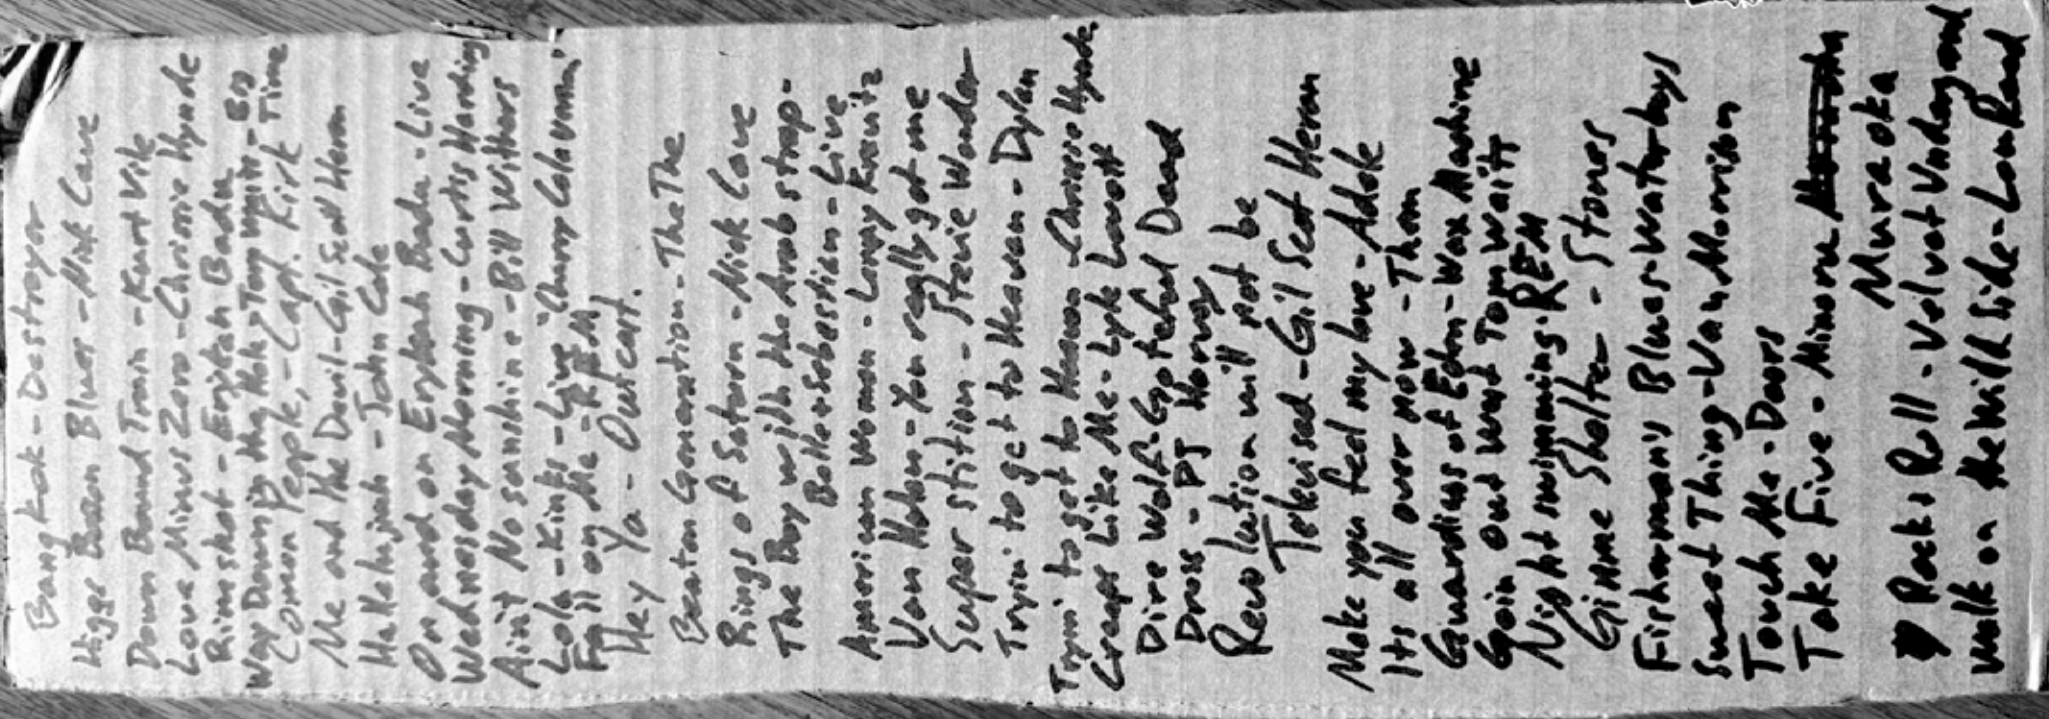 Bangkok - Destroyer
Higgs Boson Blues - Nick Cave
Down Bound Train - Kurt Vile
Love Minus Zero - Chrissie Hynde
Rimshot - Erykah Badu
Way Down in the Hole - Tom Waits - B
Comon People, - Capt. Kirk Time
Me and the Devil - Gil Scott Heron
Hallelujah - John Cale
On and on Erykah Badu - Live
Wednesday Morning - Curtis Harding
Ain't No sunshine - Bill Withers
Lola - Kinks - Live "Cherry Cola
Fall on Me - REM
Hey Ya - Outcast.
Beaten Generation - The The
Rings of Saturn - Nick Cave
The Boy with the Arab strap -
Belle + Sebastian - Live
American Woman - Lenny Kravitz
Van Halen - You really got me
Super stition - Stevie Wonder
Tryin' to get to Heaven - Dylan
Tryin' to get to Heaven - Chrissie Hynde
Creeps Like Me - Lyle Lovett
Dire Wolf - Grateful Dead
Dress - PJ Harvey
Revolution will not be
Televised - Gil Scot Heron
Make you feel my love - Adele
Its all over now - Them
Guardians of Eden - Wax Machine
Goin out West Tom Waits
Nightswimming - REM
Gimme Shelter - Stones
Fisherman's Blues - Waterboys
Sweet Thing - Van Morrison
Touch Me - Doors
Take Five - Minoru
Muraoka
Rock & Roll - Velvet Underground
Walk on the Wild Side - Lou Reed